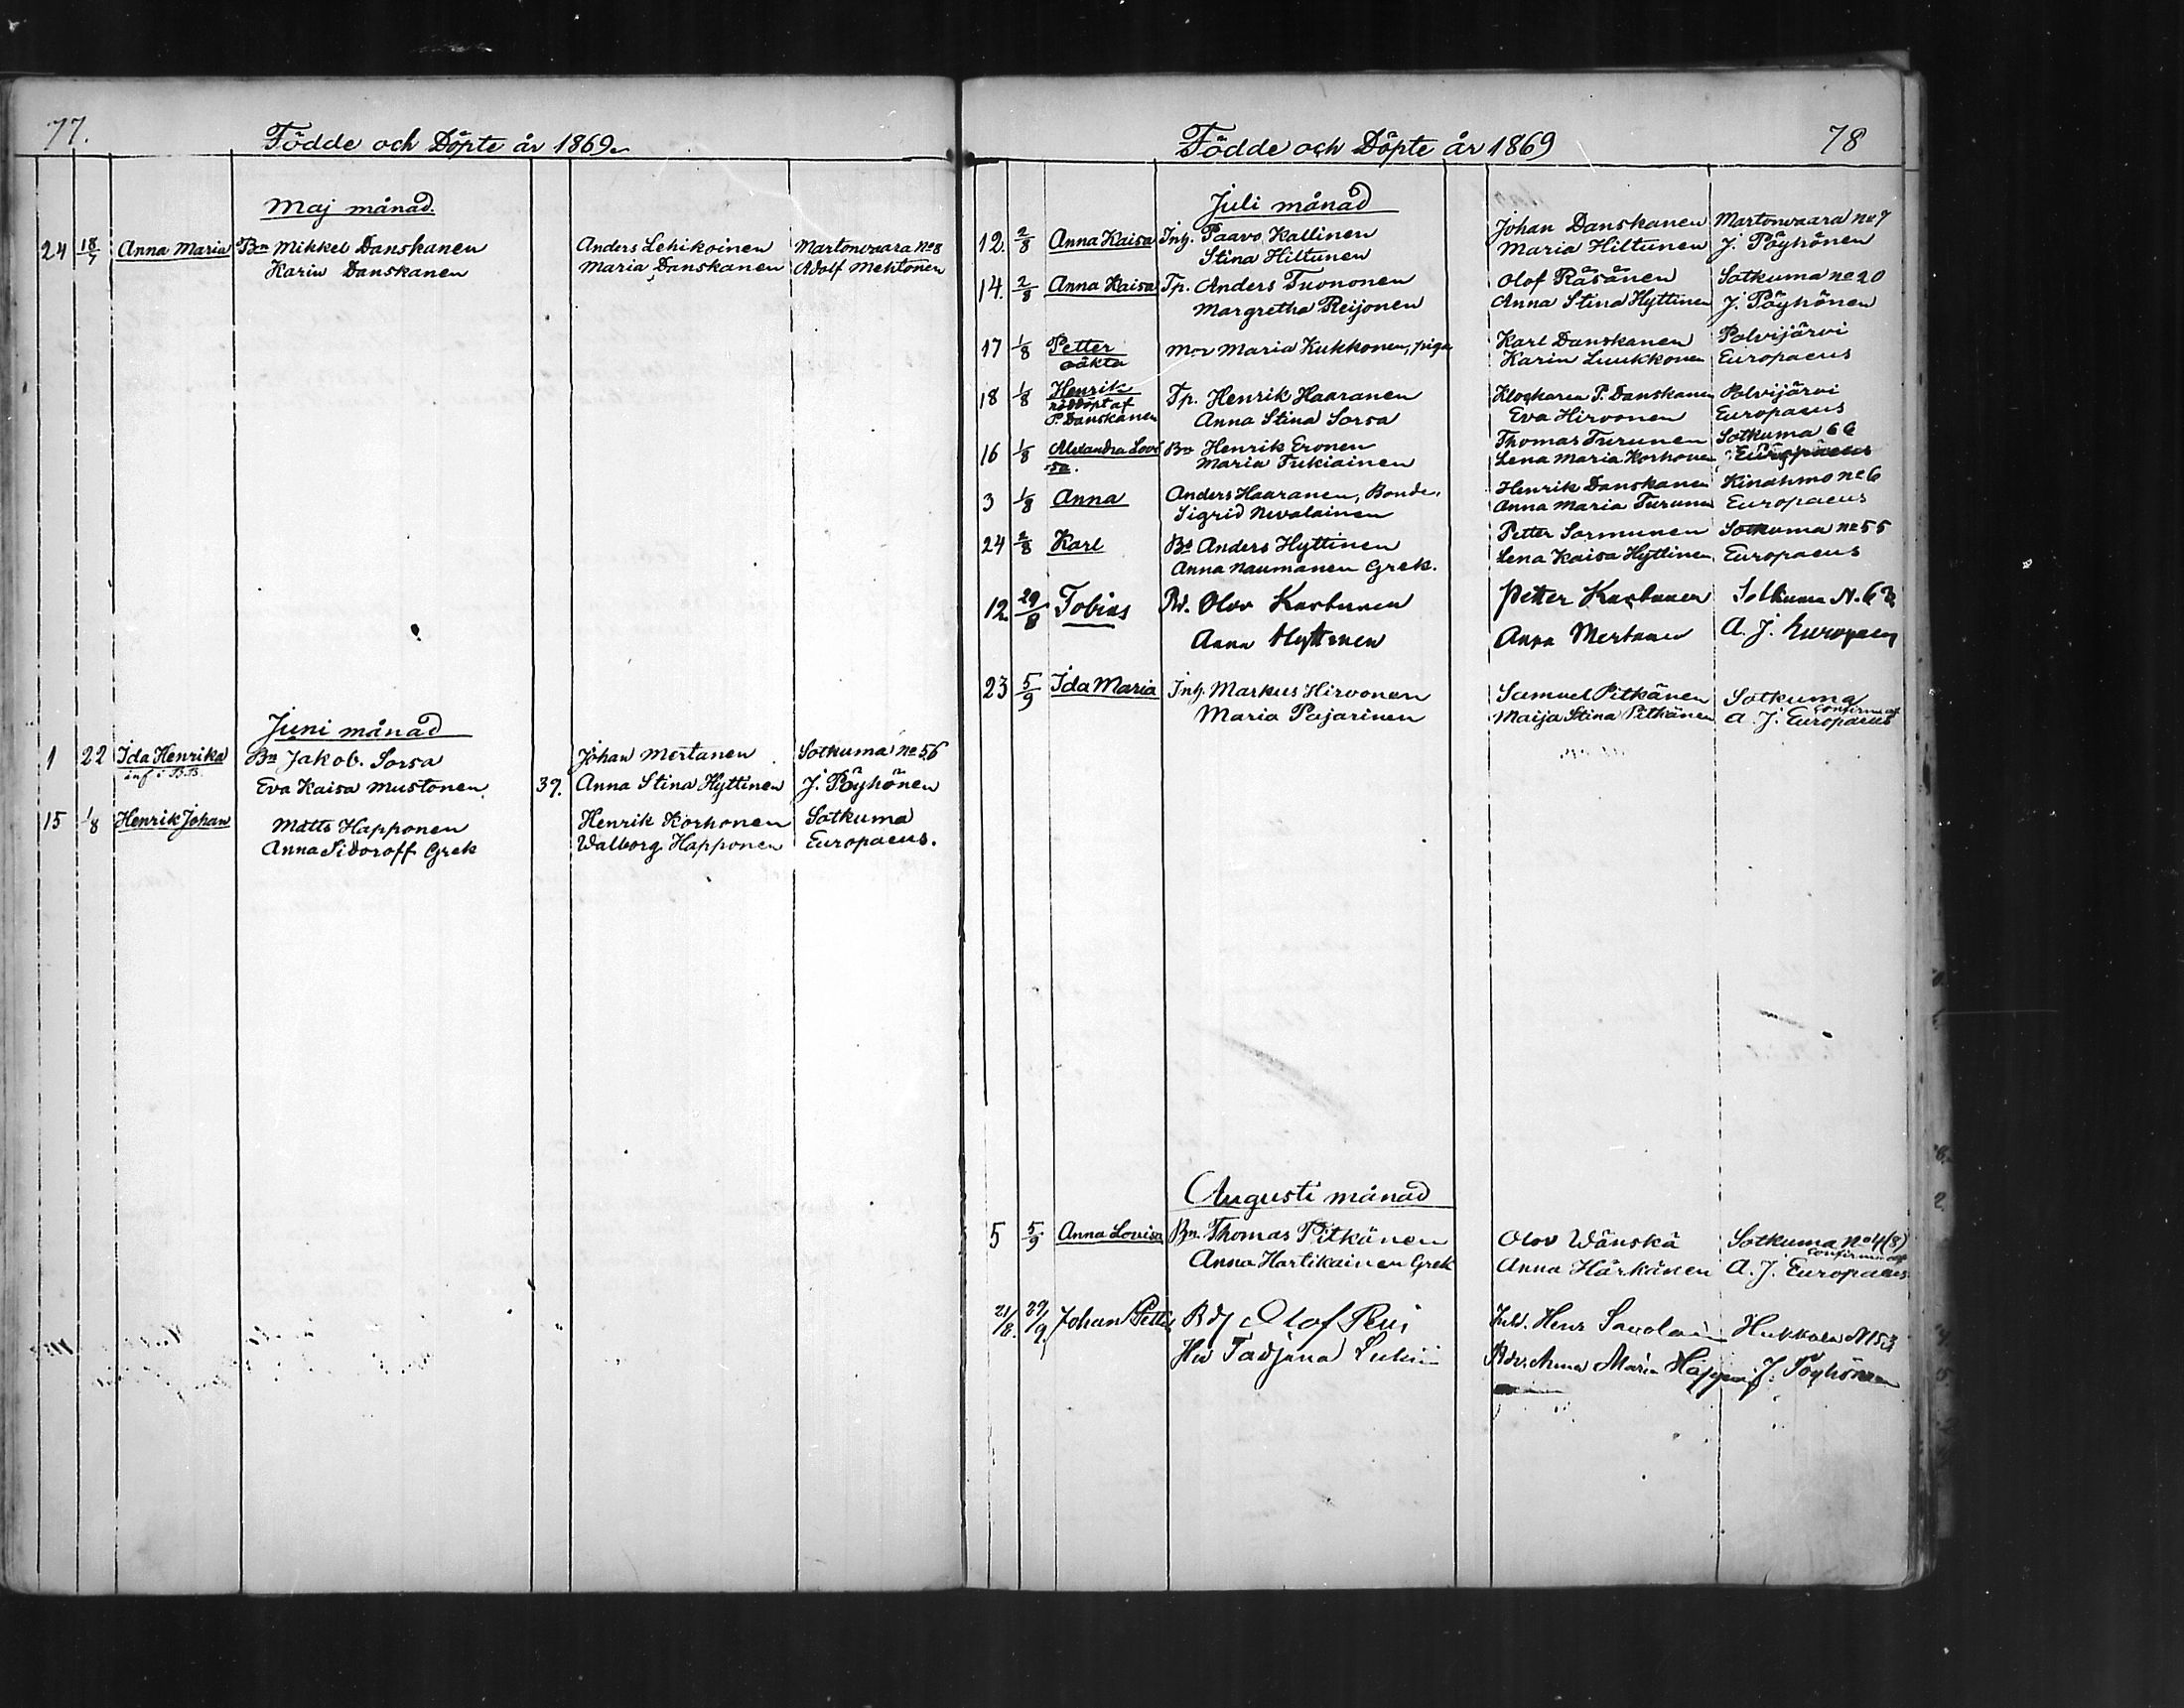 77.
Födde och Döpte år 1869.
Maj månad.
24 18/7 Anna Maria Bn Mikkel Danskanen Anders Lehikoinen Martonvaara No 8
Karin Danskanen Maria Danskanen Adolf Mehtonen
Juni månad
1 22 Ida Henrika Bn Jakob Sorsa Johan Mertanen Sotkuma No 56
inf i B.B. Eva Kaisa Mustonen 39. Anna Stina Hyttinen J. Pöyhönen
15 1/8 Henrik Johan Matts Happonen Henrik Korhonen Sotkuma
Anna Sidoroff Grek Walborg Happonen Europaeus.
Födde och Döpte år 1869
78
Juli månad
12. 2/8 Anna Kaisa Inh. Paavo Kallinen Johan Danskanen Martonvaara No 7
Stina Hiltunen Maria Hiltunen J. Pöyhönen
14. 2/8 Anna Kaisa Tp. Anders Tuononen Olof Räsänen Sotkuma No 20
Margretha Reijonen Anna Stina Hyttinen J. Pöyhönen
17 1/8 Petter Mor Maria Kukkonen, piga Karl Danskanen Polvijärvi
oäkta Karin Luukkonen Europaeus
18 1/8 Henrik Tp. Henrik Haaranen Klockaren P. Danskanen Polvijärvi
nöddöpt af Anna Stina Sorsa Eva Hirvonen Europaeus
P. Danskanen
16 1/8 Alexandra Lovi Bn Henrik Eronen Thomas Turunen Sotkuma
sa. Maria Tukiainen Lena Maria Korhonen Europaeus
3 1/8 Anna Anders Haaranen, Bonde. Henrik Danskanen Kinahmo No 6
Sigrid Nevalainen Anna Maria Turunen Europaeus
24 2/8 Karl Bs Anders Hyttinen Petter Sormunen Sotkuma No 55
Anna Naumanen Grek. Lena Kaisa Hyttinen Europaeus
12. 29/8 Tobias Olov Kastunen Petter Kastunen Sotkuma N.
Anna Hyttinen Anna Mertanen A. J. Europaeus
23 5/9 Ida Maria Inh. Markus Hirvonen Samuel Pitkänen Sotkuma
Maria Pajarinen Maija Stina Pitkänen A. J. Europaeus
Augusti månad
5 5/9 Anna Lovisa Bn. Thomas Pitkänen Olov Wänskä Sotkuma No 4 (8)
Anna Hartikainen Grek Anna Härkänen A. J. Europaeus
21/8. 29/9 Johan Petter Olof Henr Hukkala
Hu Tadjana Anna Maria J. Pöyhönen